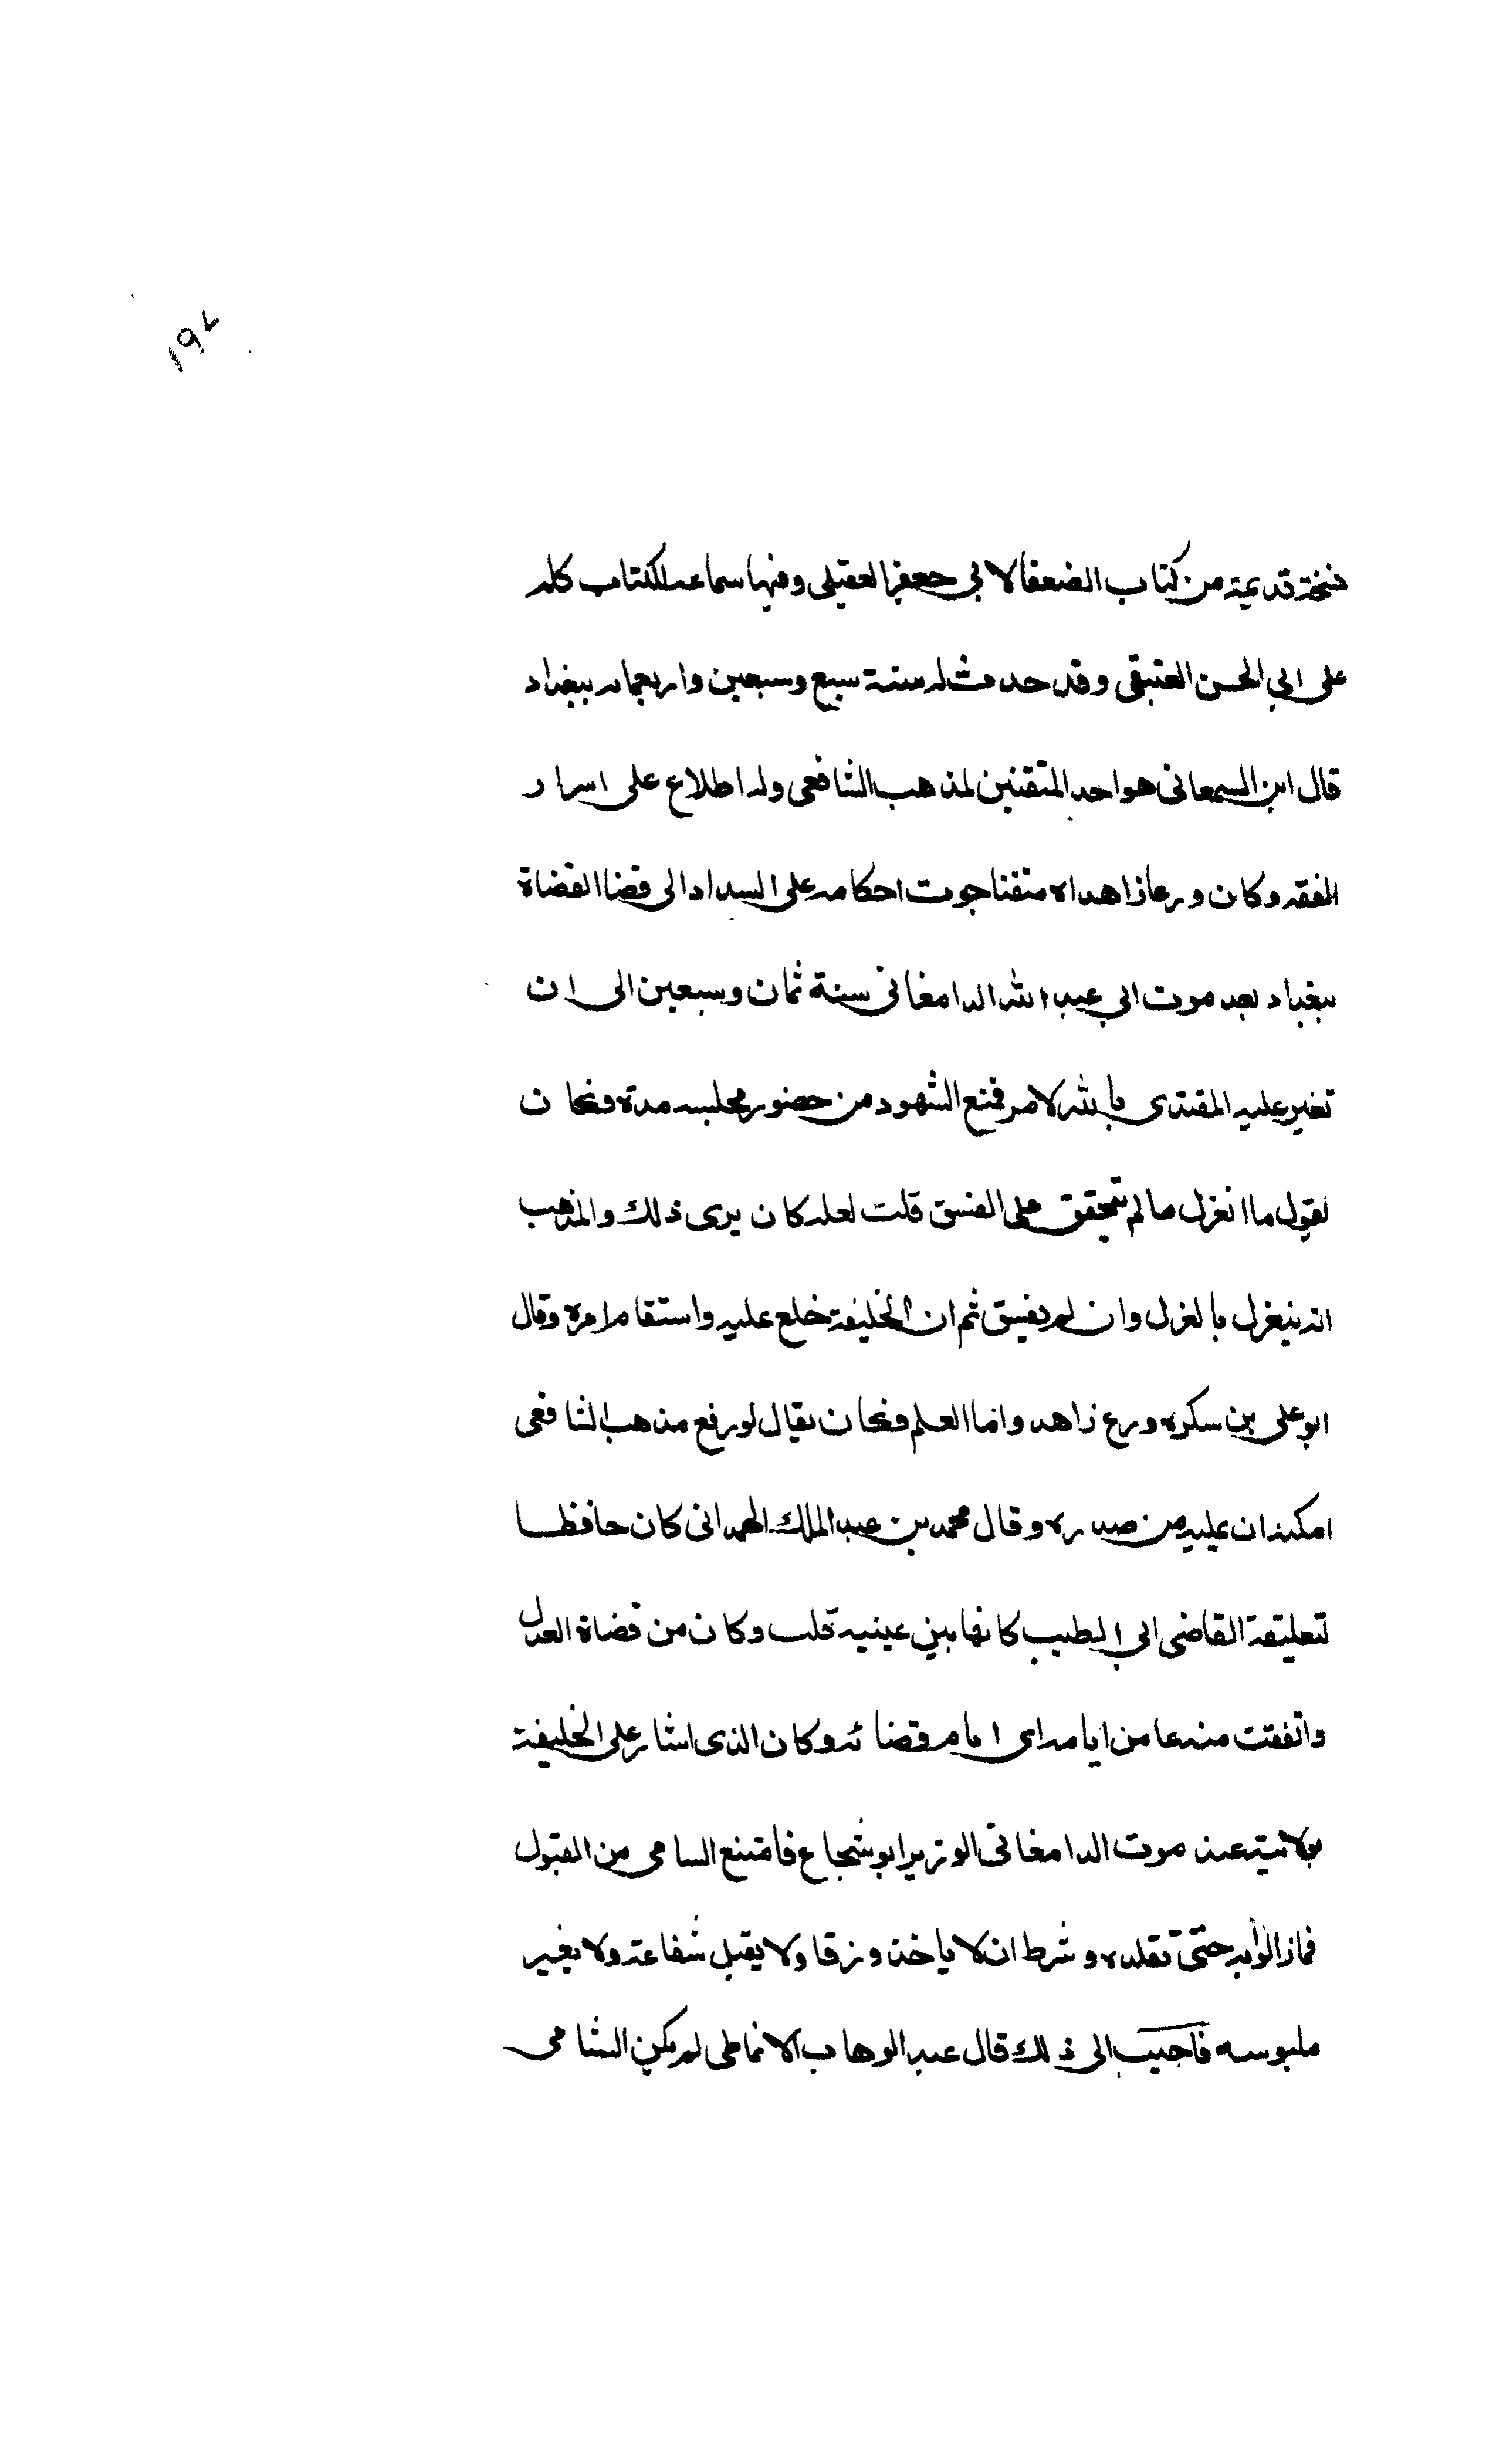 ١٩٧
نسخة قديمة من كتاب الضعفا لابى جعفر العقيلى وفيها سماعه للكتاب كله
على ابى الحسن العتيقى وقد حدث له سنة سبع وسبعين واربعمايه ببغداد
قال ابن السمعانى هو احد المتقنين لمذهب الشافعى وله اطلاع على اسرار
الفقه وكان ورعا زاهدا ه متقنا جرت احكامه على السداد الى قضا القضاة
ببغداد بعد موت ابى عبد الله الدامغانى سنة ثمان وسبعين الى ان
تغير عليه المقتدى بالله لامر فمنع الشهود من حضور مجلسه مدة فكان
يقول ما انعزل ما لم يتحقق على الفسق قلت لعله كان يرى ذلك والمذهب
انه ينعزل بالعزل وان لم يفسق ثم ان الخليفة خلع عليه واستقام امره وقال
ابو على بن سكره ورع زاهد واما العلم فكان يقال لو رفع مذهب الشافعى
امكنه ان يمليه من صدره وقال محمد بن عبد الملك الهمدانى كان حافظا
لتعليقة القاضى ابى الطيب كانها بين عينيه قلت وكان من قضاة العدل
واتفقت منه عا من ايامه اى ايام قضائه وكان الذى اشار على الخليفة
بولايته عند موت الدامغانى الوزير ابو شجاع فامتنع السامى من القبول
فما زالوا به حتى تقلده وشرط ان لا ياخذ رزقا ولا يقبل شفاعة ولا يغير
ملبوسه فاجيب الى ذلك قال عبد الوهاب الانماطى لم يكن الشامى